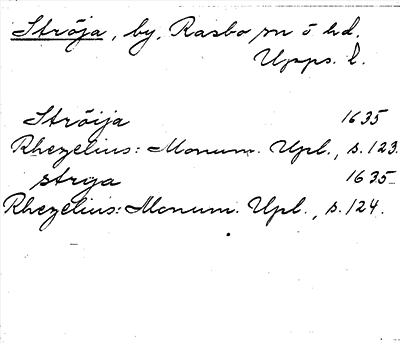 Ströja, by, Rasbo sn o hd.
Upps. l.
Ströija 1635
Rhezelius: Monum. Upl., s. 123.
strya 1635
Rhezelius: Monum. Upl., s. 124.